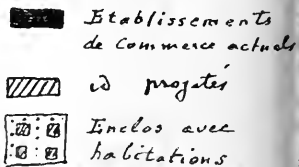 Etablissements
de Commerce actuels
id projetés
Enclos avec
habitations